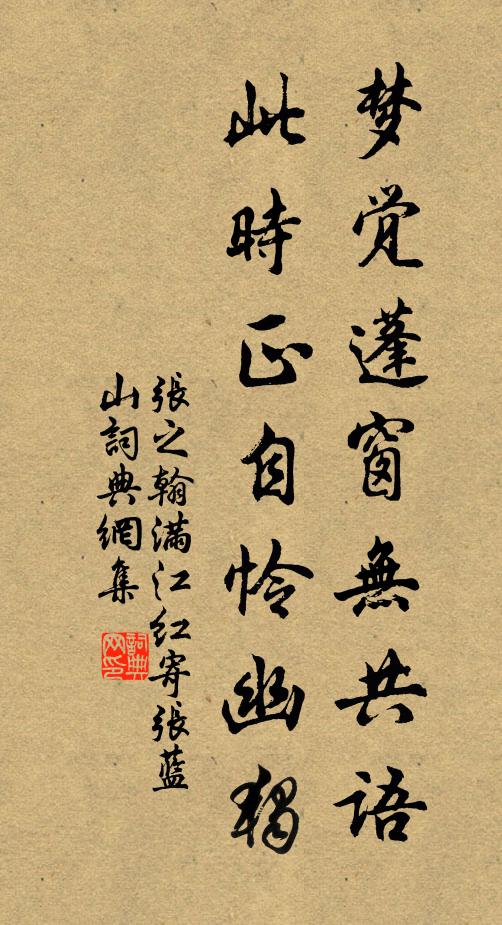 梦觉蓬窗無共语
此時正自怜幽独
張之翰满江红寄張蓝
山詞典網集
詞典网印